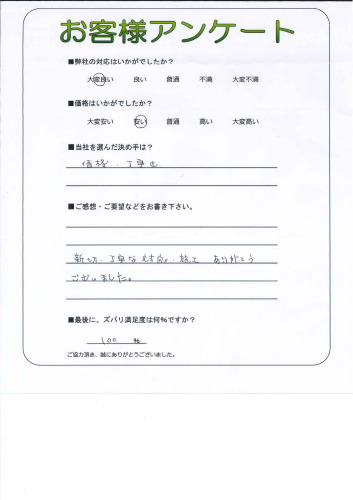 お客様アンケート
■弊社の対応はいかがでしたか？
大変良い 良い 普通 不満 大変不満
■価格はいかがでしたか？
大変安い 安い 普通 高い 大変高い
■当社を選んだ決め手は？
価格、丁寧さ
■ご感想・ご要望などをお書き下さい。
親切、丁寧な対応、施工 ありがとう
ございました。
■最後に、ズバリ満足度は何%ですか？
100 %
ご協力頂き、誠にありがとうございました。